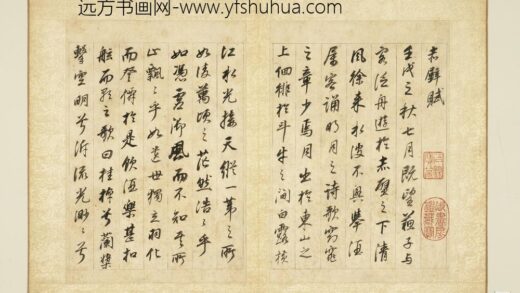 远方书画网-www.yfshuhua.com
赤壁賦
壬戌之秋七月既望蘇子與
客泛舟遊於赤壁之下清
風徐来水波不興舉酒
屬客誦明月之詩歌窈窕
之章少焉月出於東山之
上佪徘於斗牛之間白露横
江水光接天縱一葦之所
如凌萬頃之茫然浩々乎
如憑虚御風而不知其所
止飄々乎如遺世獨立羽化
而登僊於是飲酒樂甚扣
舷而歌之歌曰桂棹兮蘭槳
擊空明兮泝流光渺々兮